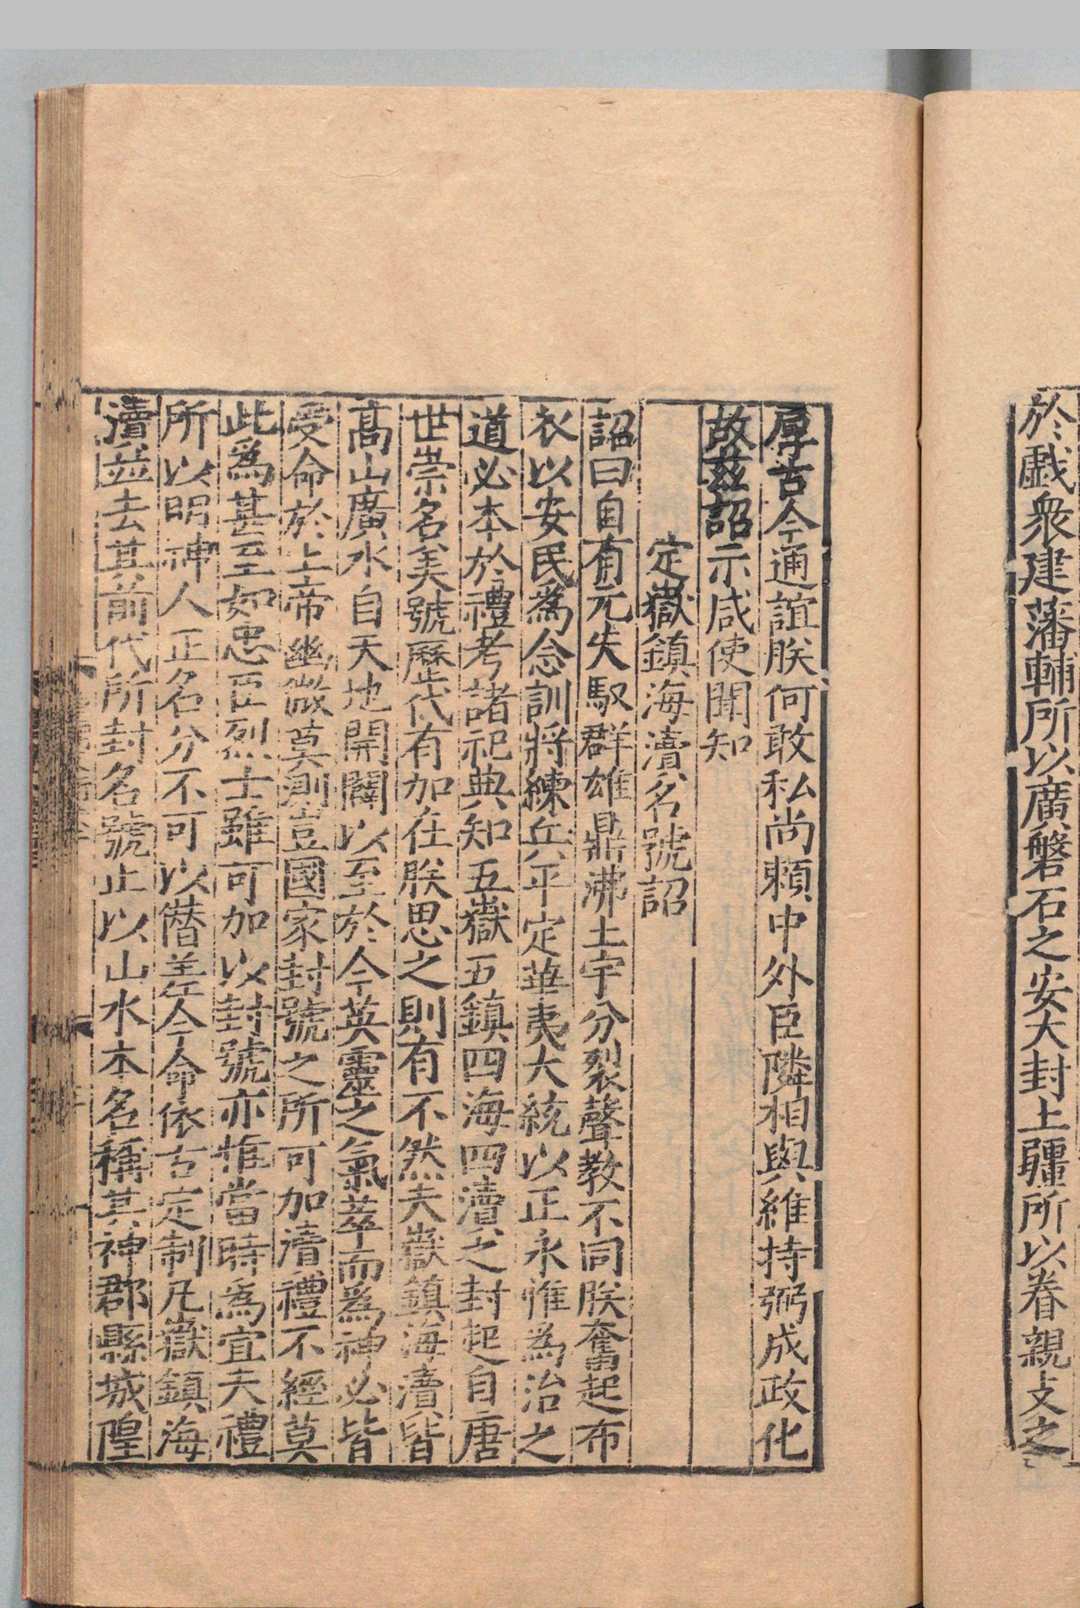 於戲衆建藩輔所以廣磐石之安大封土疆所以眷親支之
厚古今通誼朕何敢私尚賴中外臣隣相與維持弼成政化
故茲詔示咸使聞知
定嶽鎮海瀆名號詔
詔曰自有元失馭群雄鼎沸土宇分裂聲教不同朕奮起布
衣以安民爲念訓將練兵平定華夷大統以正永惟爲治之
道必本於禮考諸祀典知五嶽五鎮四海四瀆之封起自唐
世崇名美號歷代有加在朕思之則有不然夫嶽鎮海瀆皆
高山廣水自天地開闢以至於今英靈之氣萃而爲神必皆
受命於上帝幽微莫測豈國家封號之所可加瀆禮不經莫
此爲甚至如忠臣烈士雖可加以封號亦惟當時爲宜夫禮
所以明神人正名分不可以僭差今命依古定制凡嶽鎮海
瀆並去其前代所封名號止以山水本名稱其神郡縣城隍